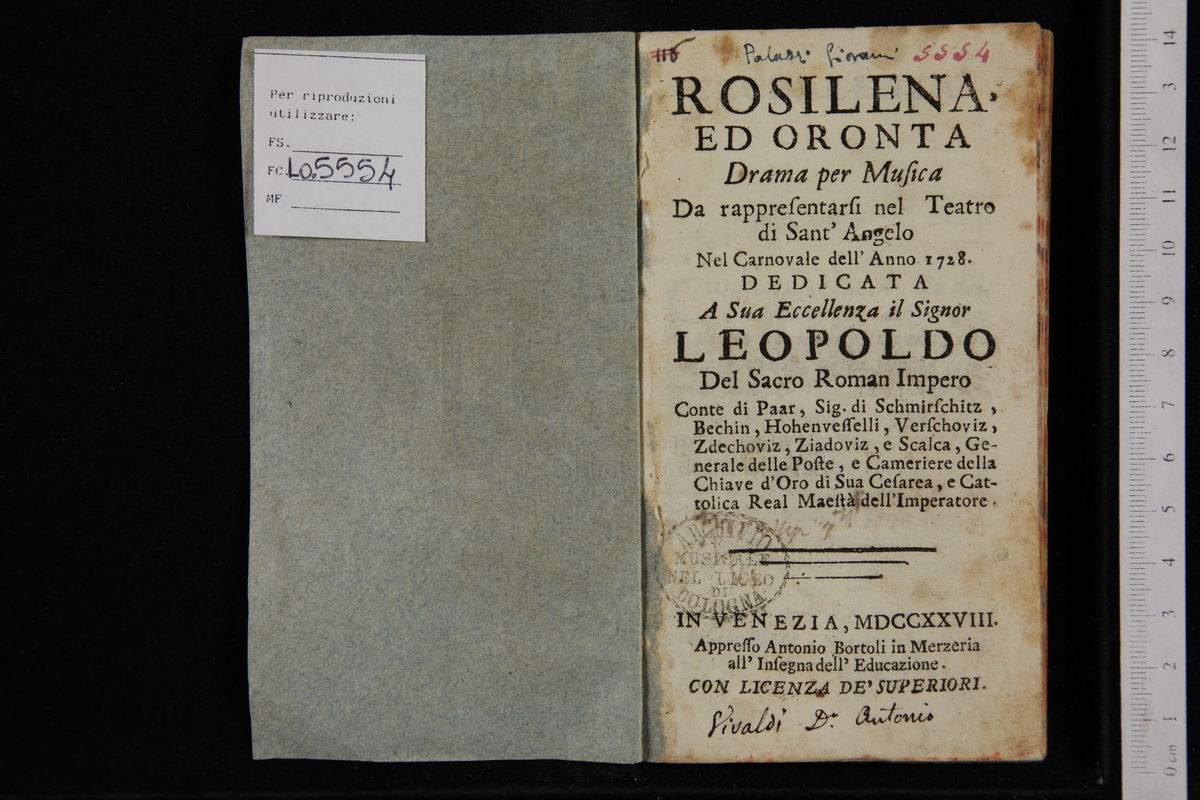 Per riproduzioni
utilizzare:
FS.
FC. Lo.5554
MF
116
Palazzi Giovani 5554
ROSILENA,
ED ORONTA
Drama per Muſica
Da rappreſentarſi nel Teatro
di Sant' Angelo
Nel Carnovale dell' Anno 1728.
DEDICATA
A Sua Eccellenza il Signor
LEOPOLDO
Del Sacro Roman Impero
Conte di Paar, Sig. di Schmirſchitz,
Bechin, Hohenveſſelli, Verſchoviz,
Zdechoviz, Ziadoviz, e Scalca, Ge-
nerale delle Poſte, e Cameriere della
Chiave d'Oro di Sua Ceſarea, e Cat-
tolica Real Maeſtà dell'Imperatore.
ARCHIVIO
MUSICALE
NEL LICEO
DI
BOLOGNA
IN VENEZIA, MDCCXXVIII.
Appreſſo Antonio Bortoli in Merzeria
all' Inſegna dell' Educazione.
CON LICENZA DE' SUPERIORI.
Vivaldi D. Antonio
14
3
12
11
10
9
8
7
6
5
4
3
2
1
0 cm